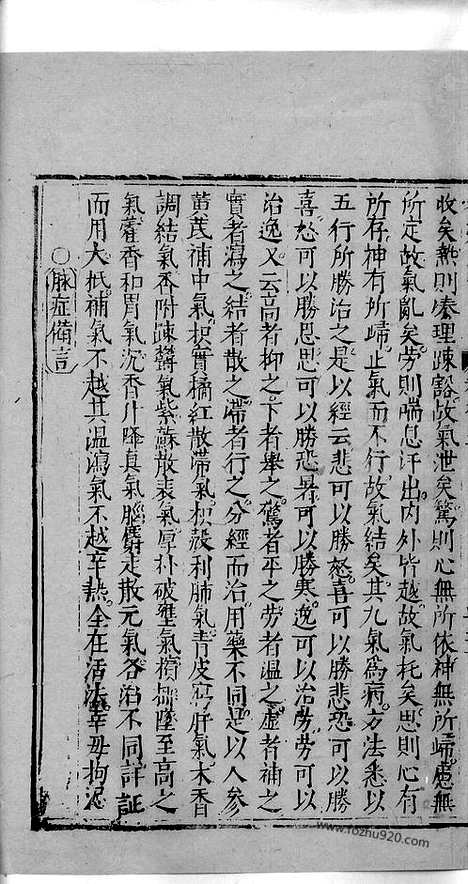 收矣熱則湊理疎豁故氣泄矣驚則心無所依神無所歸慮無
所定故氣亂矣勞則喘息汗出內外皆越故氣耗矣思則心有
所存神有所歸止氣而不行故氣結矣其九氣為病方法悉以
五行所勝治之是以經云悲可以勝怒喜可以勝悲恐可以勝
喜怒可以勝思思可以勝恐暑可以勝寒逸可以治勞勞可以
治逸又云高者抑之下者舉之驚者平之勞者溫之虛者補之
實者瀉之結者散之滯者行之分經而治用藥不同是以人參
黃芪補中氣枳實橘紅散滯氣枳殼利肺氣青皮瀉肝氣木香
調結氣香附疎欝氣紫蘇散表氣厚朴破壅氣檳榔墜至高之
氣藿香和胃氣沉香升降真氣腦麝走散元氣各治不同詳証
而用大抵補氣不越其溫瀉氣不越辛熱全在活法幸毋拘泥
○脉症備言
www.fozhu920.com